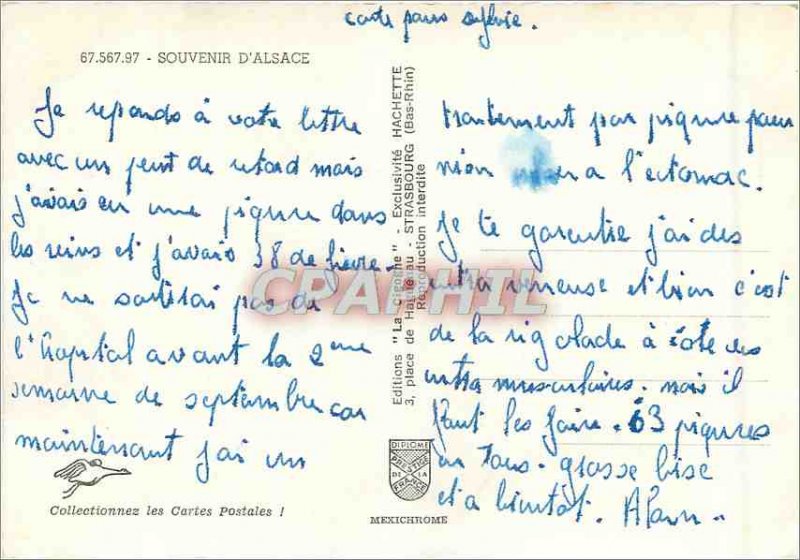 carte pour sylvie.
67.567.97 - SOUVENIR D'ALSACE
Je reponds à votre lettre
avec un peut de retard mais
j'avais eu une piqure dans
les reins et j'avais 38 de fievre.
Je ne sortirai pas de
l'hopital avant la 2eme
semaine de septembre car
maintenant j'ai un
Collectionnez les Cartes Postales !
Editions "La Cigogne" - Exclusivité HACHETTE
3, place de Haguenau - STRASBOURG (Bas-Rhin)
Reproduction interdite
DIPLOME
PRESTIGE
DE LA
FRANCE
MEXICHROME
traitement par piqure pour
mon a l'estomac.
Je te garentie j'ai des
intra veneuse et bien c'est
de la rigolade à coté des
intra musculaires. mais il
faut les faire. 63 piqures
en tous. grosse bise
et a bientot. Alain..
CPAPHIL